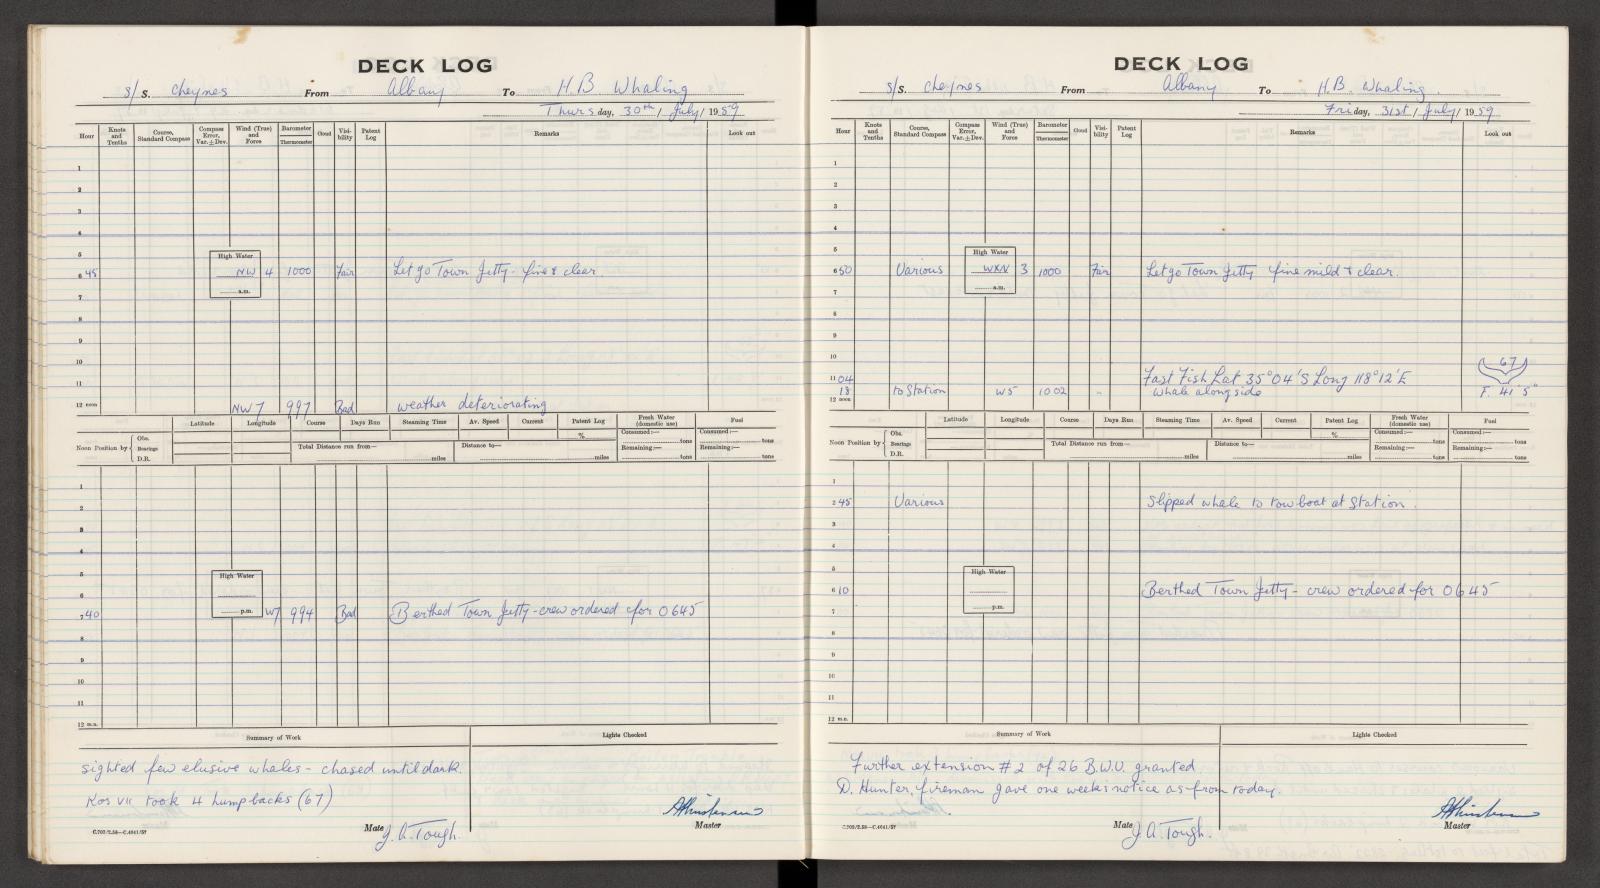 DECK LOG
S/S. Cheynes From Albany To H.B Whaling
Thursday, 30th / July / 1959
Hour Knots and Tenths Course, Standard Compass Compass Error, Var. ± Dev. Wind (True) and Force Barometer Thermometer Cloud Visibility Patent Log Remarks Look out
1
2
3
4
5 High Water
6 45 NW 4 1000 Fair Let go Town Jetty - fine & clear.
a.m.
7
8
9
10
11
12 noon NW 7 997 Bad weather deteriorating
Latitude Longitude Course Days Run Steaming Time Av. Speed Current Patent Log Fresh Water (domestic use) Fuel
% Consumed:— tons Consumed:— tons
Noon Position by Obs. Bearings D.R. Total Distance run from— miles Distance to— miles Remaining:— tons Remaining:— tons
1
2
3
4
5 High Water
6
p.m.
7 40 W7 994 Bad Berthed Town Jetty - crew ordered for 0645
8
9
10
11
12 m.n.
Summary of Work Lights Checked
sighted few elusive whales - chased until dark.
Kos VII took 4 humpbacks (67)
C.702/2.58—C.4641/57 Mate J. A. Tough. Master
DECK LOG
S/S. Cheynes From Albany To H.B. Whaling.
Friday, 31st / July / 1959
Hour Knots and Tenths Course, Standard Compass Compass Error, Var. ± Dev. Wind (True) and Force Barometer Thermometer Cloud Visibility Patent Log Remarks Look out
1
2
3
4
5 High Water
6 50 Various WXN 3 1000 Fair Let go Town Jetty fine mild & clear.
a.m.
7
8
9
10
67
11 04 Fast Fish Lat 35°04'S Long 118°12'E
18 to Station W5 1002 " whale alongside F. 41'5"
12 noon
Latitude Longitude Course Days Run Steaming Time Av. Speed Current Patent Log Fresh Water (domestic use) Fuel
% Consumed:— tons Consumed:— tons
Noon Position by Obs. Bearings D.R. Total Distance run from— miles Distance to— miles Remaining:— tons Remaining:— tons
1
2 45 Various Slipped whale to tow boat at Station.
3
4
5 High Water
6 10 Berthed Town Jetty - crew ordered for 0645
p.m.
7
8
9
10
11
12 m.n.
Summary of Work Lights Checked
Further extension #2 of 26 B.W.U. granted
D. Hunter, fireman gave one weeks notice as from today.
C.702/2.58—C.4641/57 Mate J. A. Tough. Master